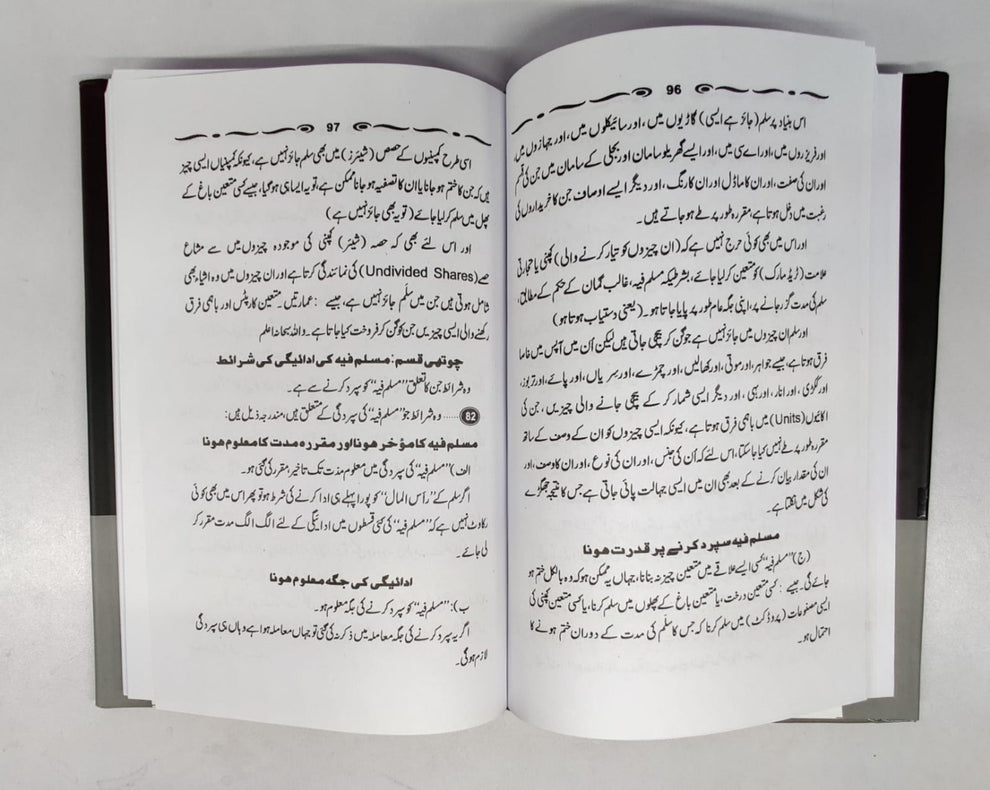 96
اس بنیاد پر سلم (جائز ہے ایسی) گاڑیوں میں، اور سائیکلوں میں، اور جہازوں میں،
اور فریزروں میں، اور اے سی میں، اور ایسے گھریلو سامان اور بجلی کے سامان میں جن کی قسم
اور ان کی صفت، اور ان کا ماڈل اور ان کا رنگ، اور دیگر ایسے اوصاف جن کا خریداروں کی
رغبت میں دخل ہوتا ہے، مقررہ طور پر طے ہو جاتے ہیں۔
اور اس میں بھی کوئی حرج نہیں ہے کہ (ان چیزوں کو تیار کرنے والی) کمپنی یا تجارتی
علامت (ٹریڈ مارک) کو متعین کر لیا جائے، بشرطیکہ مسلم فیہ، غالب گمان کے حکم کے مطابق،
سلم کی مدت گزر جانے پر، اپنی جگہ عام طور پر پایا جاتا ہو۔ (یعنی دستیاب ہوتا ہو)
اور سلم ان چیزوں میں جائز نہیں ہے جو گن کر بیچی جاتی ہیں لیکن اُن میں آپس میں خاصا
فرق ہوتا ہے، جیسے جواہر، اور موتی، اور کھالیں، اور چمڑے، اور سریاں، اور پائے، اور تربوز،
اور ککڑی، اور انار، اور بہی، اور دیگر ایسی شمار کر کے بیچی جانے والی چیزیں، جن کی
اکائیوں (Units) میں باہمی فرق ہوتا ہے، کیونکہ ایسی چیزوں کو ان کے وصف کے ساتھ
مقررہ طور پر طے نہیں کیا جا سکتا، اس لئے کہ اُن کی جنس، اور ان کی نوع، اور ان کا وصف، اور
ان کی مقدار بیان کرنے کے بعد بھی ان میں ایسی جہالت پائی جاتی ہے جس کا نتیجہ جھگڑے
کی شکل میں نکلتا ہے۔
مسلم فیہ سپرد کرنے پر قدرت ہونا
(ج) ”مسلم فیہ“ کسی ایسے علاقے میں متعین چیز نہ بنانا، جہاں یہ ممکن ہو کہ وہ بالکل ختم ہو
جائے گی۔ جیسے: کسی متعین درخت، یا متعین باغ کے پھلوں میں سلم کرنا، یا کسی متعین کمپنی کی
ایسی مصنوعات (پروڈکٹ) میں سلم کرنا کہ جس کا سلم کی مدت کے دوران ختم ہونے کا
احتمال ہو۔
97
اسی طرح کمپنیوں کے حصص (شیئرز) میں بھی سلم جائز نہیں ہے، کیونکہ کمپنیاں ایسی چیز
ہیں کہ جن کا ختم ہو جانا یا ان کا تصفیہ ہو جانا ممکن ہے، تو یہ ایسا ہی ہو گیا، جیسے کسی متعین باغ کے
پھل میں سلم کر لیا جائے (تو یہ بھی جائز نہیں ہے)
اور اس لئے بھی کہ حصہ (شیئر) کمپنی کی موجودہ چیزوں میں سے مشاع
حصے (Undivided Shares) کی نمائندگی کرتا ہے اور ان چیزوں میں وہ اشیاء بھی
شامل ہوتی ہیں جن میں سلَم جائز نہیں ہے، جیسے: عمارتیں۔ متعین کارپٹس اور باہمی فرق
رکھنے والی ایسی چیزیں جن کو گن کر فروخت کیا جاتا ہے۔ واللہ سبحانہ اعلم
چوتھی قسم: مسلم فیہ کی ادائیگی کی شرائط
وہ شرائط جن کا تعلق ”مسلم فیہ“ کو سپرد کرنے سے ہے۔
82 ..... وہ شرائط جو ”مسلم فیہ“ کی سپردگی کے متعلق ہیں، مندرجہ ذیل ہیں:
مسلم فیہ کا مؤخر ہونا اور مقررہ مدت کا معلوم ہونا
الف) ”مسلم فیہ“ کی سپردگی میں معلوم مدت تک تاخیر مقرر کی گئی ہو۔
اگر سلم کے ”رأس المال“ کو پورا پہلے ہی ادا کرنے کی شرط ہو تو پھر اس میں بھی کوئی
رکاوٹ نہیں ہے کہ ”مسلم فیہ“ کی کئی قسطوں میں ادائیگی کے لئے الگ الگ مدت مقرر کر
لی جائے۔
ادائیگی کی جگہ معلوم ہونا
ب): ”مسلم فیہ“ کو سپرد کرنے کی جگہ معلوم ہو۔
اگر یہ سپرد کرنے کی جگہ معاملہ میں ذکر نہ کی گئی تو جہاں معاملہ ہوا ہے وہاں ہی سپردگی
لازم ہو گی۔